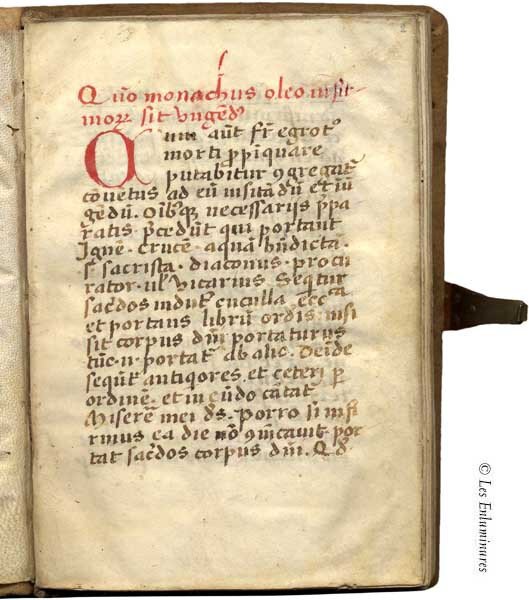 2
Quō monachus oleo infir
morꝝ sit vngēd9
Quum aūt fr̄ egrot9
morti ꝓpīquare
putabitur ꝯgregat9
cōuetus ad eū uisitādū et ū
gēdū. Oīb9qꝫ necessarijs p̄pa
ratis p̄cedūt qui portant
Ignē. crucē. aquā bn̄dictā.
sꝫ sacrista. diaconus. procu
rator. ul᷎ uicarius. Seqūtur
sac̄dos indut9 cuculla eccᵃ
et portans librū ordīs. nisi
sit corpus dn̄i portaturus
tūc .n. portat9 ab alio. Deīde
sequūt antiqores. et ceteri ꝑ
ordinē. et in eūdo cātāt
Miserē mei ds̄. Porro si infi
rmus ea die nō ꝯm̄cauit por
tat sac̄dos corpus dn̄i. Qd̄
© Les Enluminures